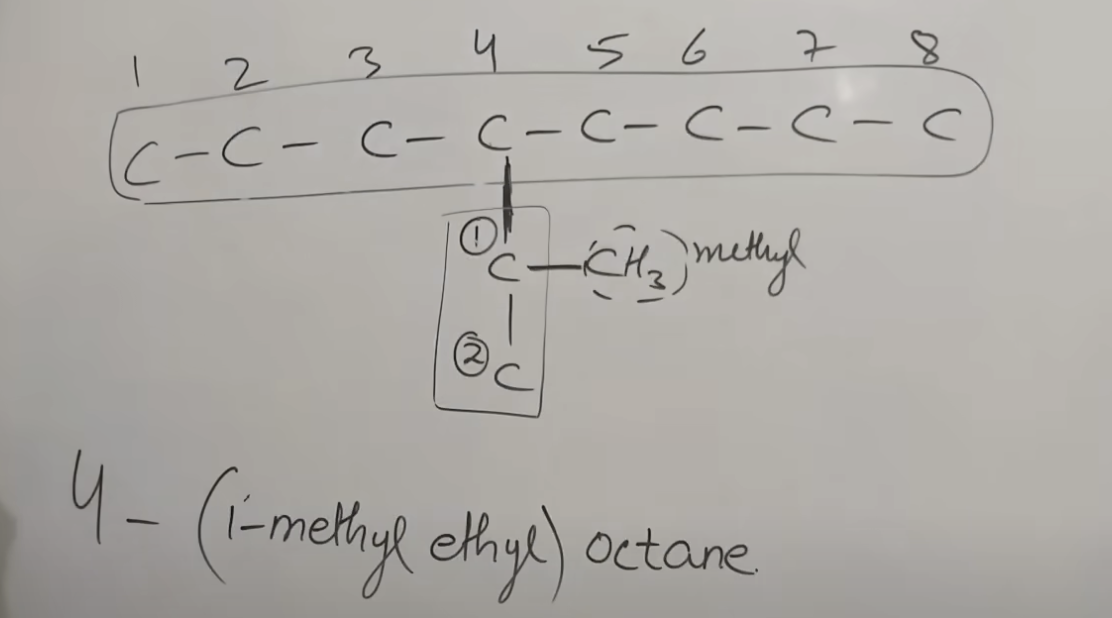 1 2 3 4 5 6 7 8
C – C – C – C – C – C – C – C
① C — CH₃ methyl
② C
4 – (1-methyl ethyl) octane.